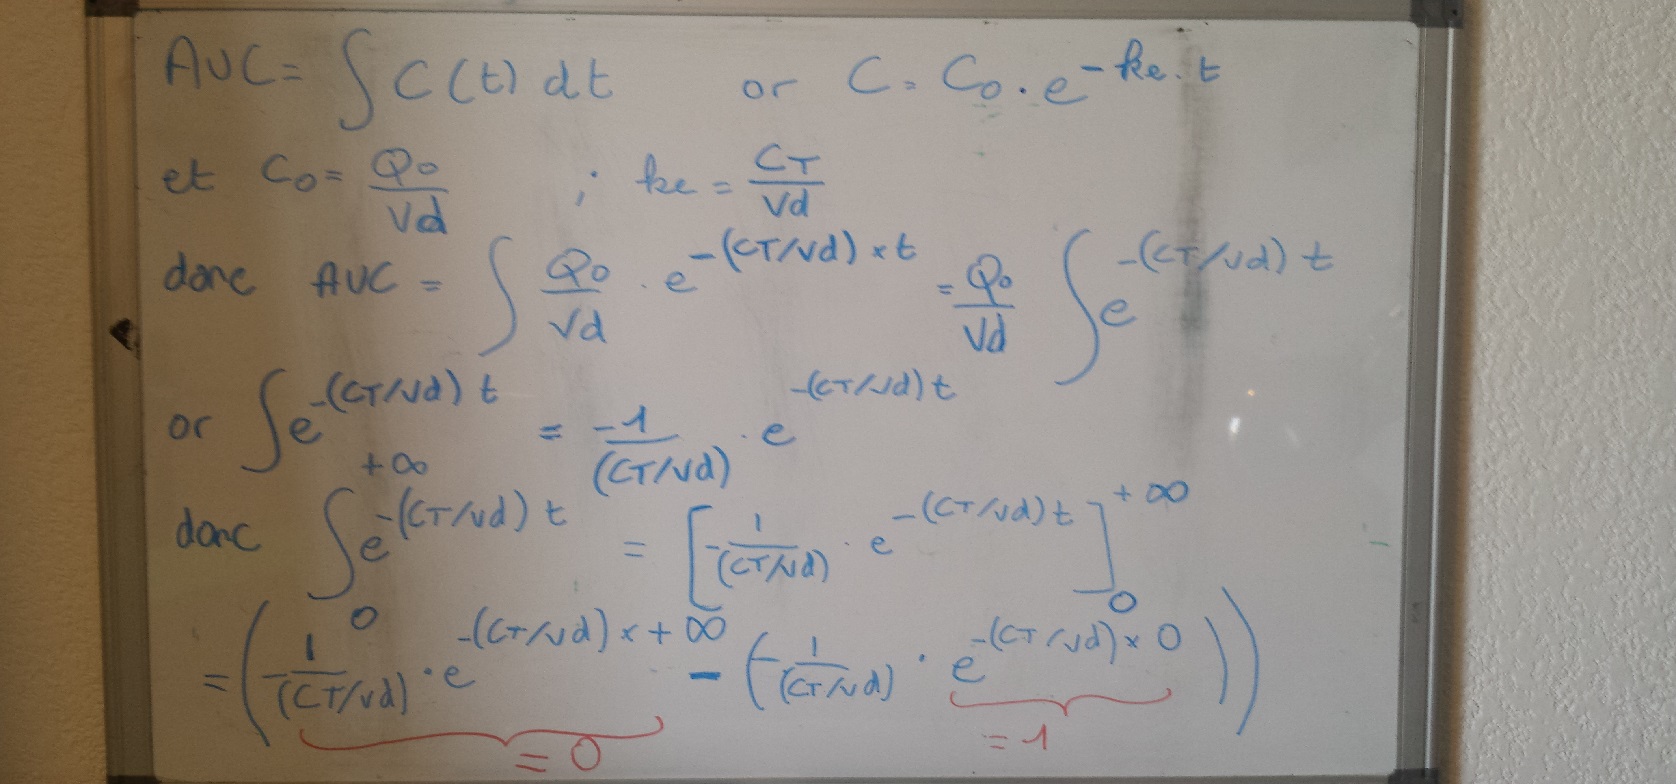 AUC = ∫ C(t) dt or C = C₀ . e^(-ke . t)
et C₀ = Q₀/Vd ; ke = CT/Vd
donc AUC = ∫ Q₀/Vd . e^(-(CT/Vd) × t) = Q₀/Vd ∫ e^(-(CT/Vd) t)
or ∫ e^(-(CT/Vd) t) = -1/(CT/Vd) . e^(-(CT/Vd) t)
donc ∫₀^(+∞) e^(-(CT/Vd) t) = [-1/(CT/Vd) . e^(-(CT/Vd) t)]₀^(+∞)
= (-1/(CT/Vd) . e^(-(CT/Vd) × +∞) - (-1/(CT/Vd) . e^(-(CT/Vd) × 0)))
= 0 = 1